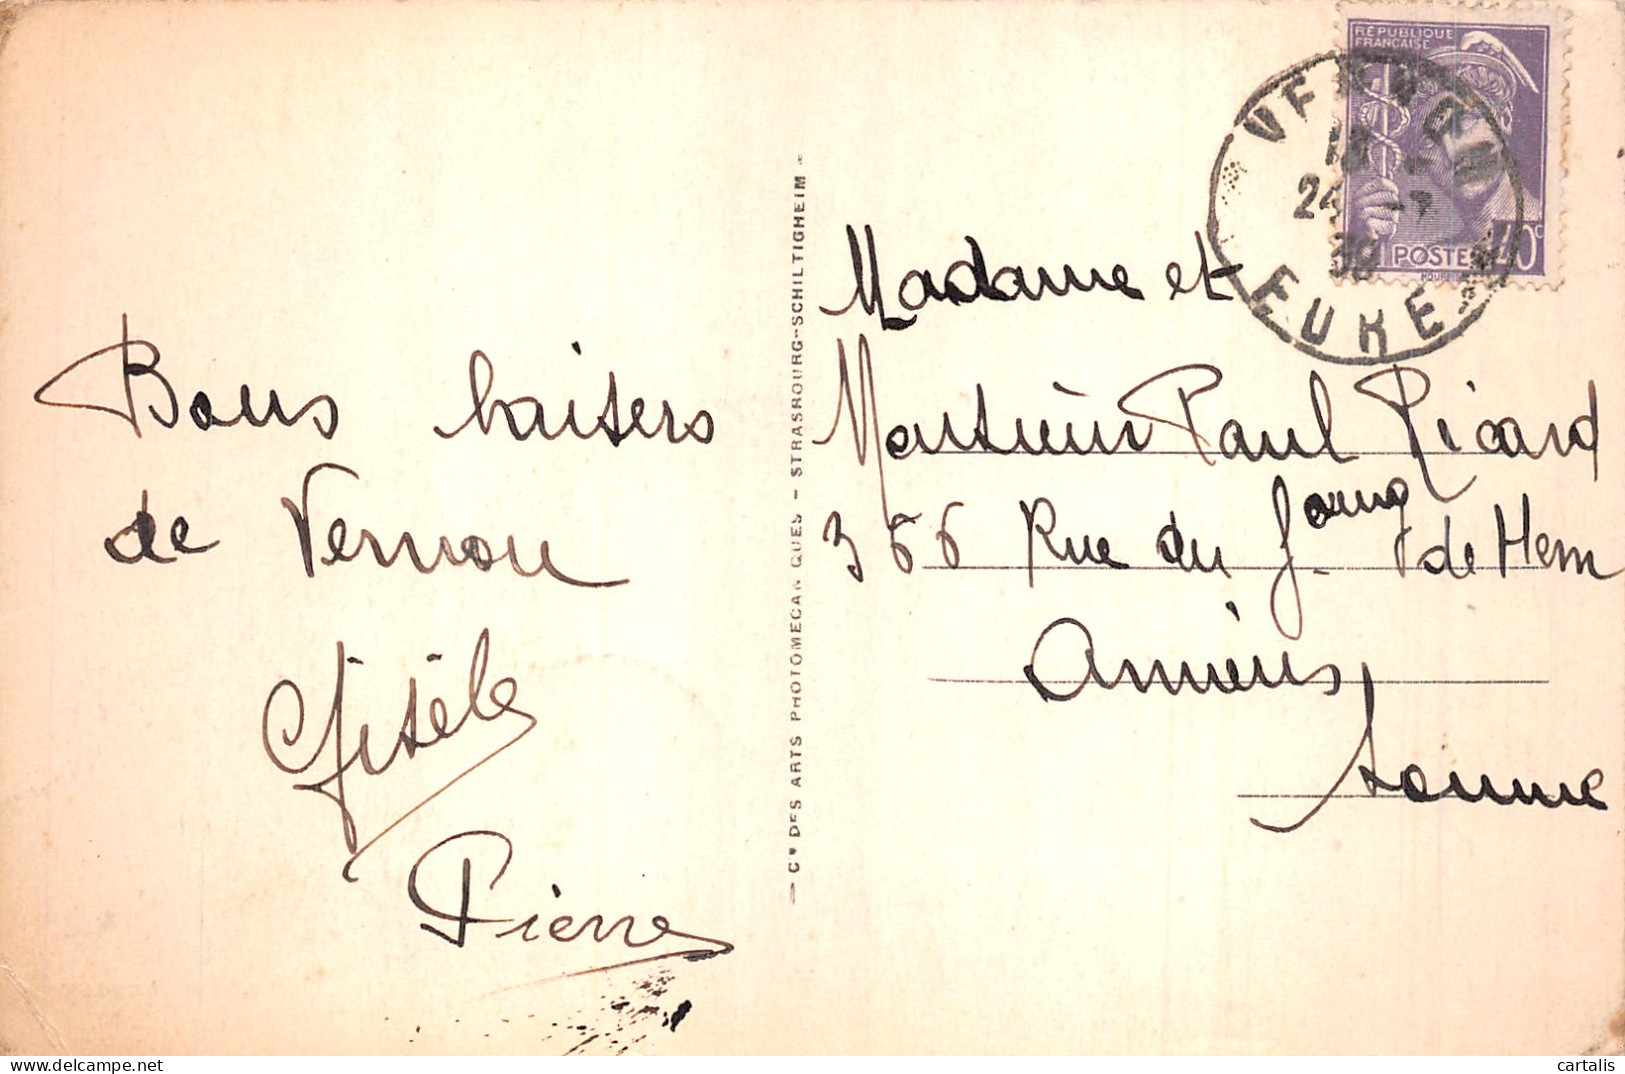 Bons baisers
de Vernon
Gisèle
Pierre
Cie DES ARTS PHOTOMECANIQUES - STRASBOURG-SCHILTIGHEIM
RÉPUBLIQUE
FRANÇAISE
POSTES
40c
VERNON
24 -
39
EURE
Madame et
Monsieur Paul Ricard
366 Rue du Faung
de Hem
Amiens
Somme
cartalis
delcampe.net